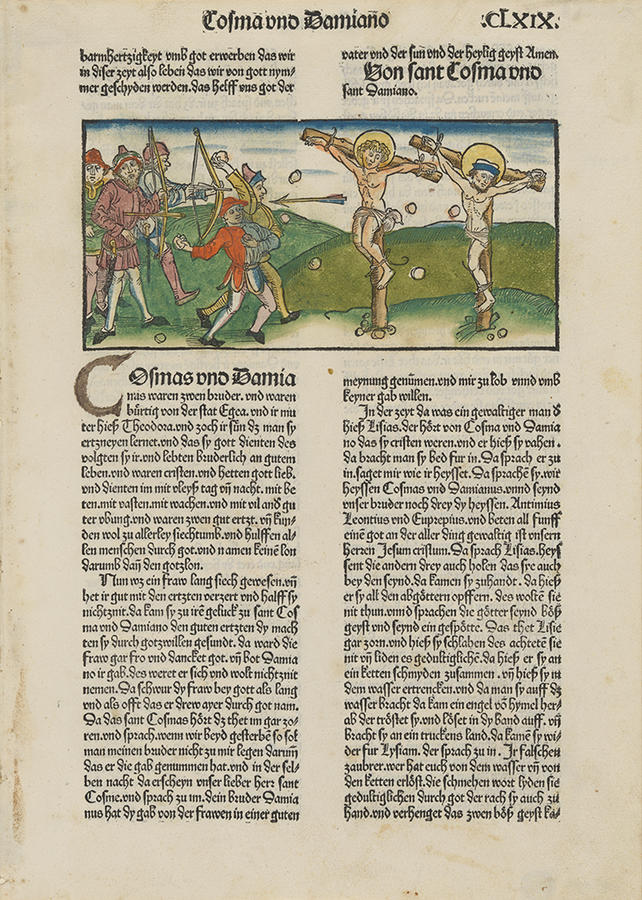 Cosma vnd Damiano .CLXIX.
barmhertzigkeyt vmb got erwerben das wir
in diser zeyt also leben das wir von gott nym̄-
mer geschyden werden. das helff vns got der
vater vnd der sun vnd der heylig geyst Amen.
Von sant Cosma vnd
sant Damiano.
COsmas vnd Damia
nus waren zwen bruder. vnd waren
bürtig von der stat Egea. vnd ir mu
ter hieß Theodora. vnd zoch ir sün dz man sy
ertzneyen lernet. vnd das sy got dienten des
volgten sy ir. vnd lebten bruderlich an gutem
leben. vnd waren cristen. vnd hetten got lieb.
vnd dienten im mit vleyß tag vn̄ nacht. mit be
ten. mit vasten. mit wachen. vnd mit vil and gu
ter vbung. vnd waren zwen gut ertzt. vn̄ kun̄-
den wol zu allerley siechtumb. vnd hulffen al-
len menschen durch got. vnd namen keinē lon
darumb dan̄ den gotzlon.
Nun wz ein fraw lang siech gewesen. vn̄
het ir gut mit den ertzten verzert vnd halff sy
nichtznit. da kam sy zu irē geluck zu sant Cos
ma vnd Damiano den guten ertzten dy mach
ten sy durch gotzwillen gesundt. da ward die
fraw gar fro vnd dancket got. vn̄ bot Damia
no ir gab. des weret er sich vnd wolt nichtznit
nemen. Da schwur dy fraw bey gott als lang
vnd als offt das er drew ayer durch got nam.
Da das sant Cosmas hört dz thet im gar zo-
ren. vnd sprach. wenn wir beyd gesterbē so sol
man meinen bruder nicht zu mir legen darum̄
das er die gab genummen hat. vnd in der sel-
ben nacht da erscheyn vnser lieber herr sant
Cosme. vnd sprach zu im. dein bruder Damia
nus hat dy gab von der frawen in einer guten
meynung genūmen. vnd mir zu lob vnnd vmb
keyner gab willen.
In der zeyt da was ein gewaltiger man d
hieß Lisias. der hört von Cosma vnd Damia
no das sy cristen weren. vnd er hieß sy vahen.
da bracht man sy bed fur in. Da sprach er zu
in. saget mir wie ir heysset. Da sprachē sy. wir
heyssen Cosmas vnd Damianus. vnnd seynd
vnser bruder noch drey dy heyssen. Antimius
Leontius vnd Euprepius. vnd beten all funff
einē got an der aller ding gewaltig ist vnsern
herren Jesum cristum. Da sprach Lisias. heys
sent die andern drey auch holen das sye auch
bey den seynd. da kamen sy zuhandt. da hieß
er sy all den abgöttern opffern. des woltē sie
nit thun. vnnd sprachen die götter seynd böß
geyst vnd seynd ein gespötte. Das thet Lisie
gar zorn. vnd hieß sy schlahen des achtetē sie
nit vn̄ liden es gedultiglichē. da hieß er sy an
ein ketten schmyden zusammen. vn̄ hieß sy in
dem wasser ertrencken. vnd da man sy auff dz
wasser bracht da kam ein engel vō hymel her-
ab der tröstet sy. vnd löset in dy band auff. vn̄
bracht sy an ein truckens land. da kamē sy wi-
der fur Lysiam. der sprach zu in. Ir falschen
zaubrer. wer hat euch von dem wasser vn̄ von
den ketten erlöst. die schmehen wort lyden sie
gedultiglichen durch got der rach sy auch zu
hand. vnd verhenget das zwen böß geyst ka-